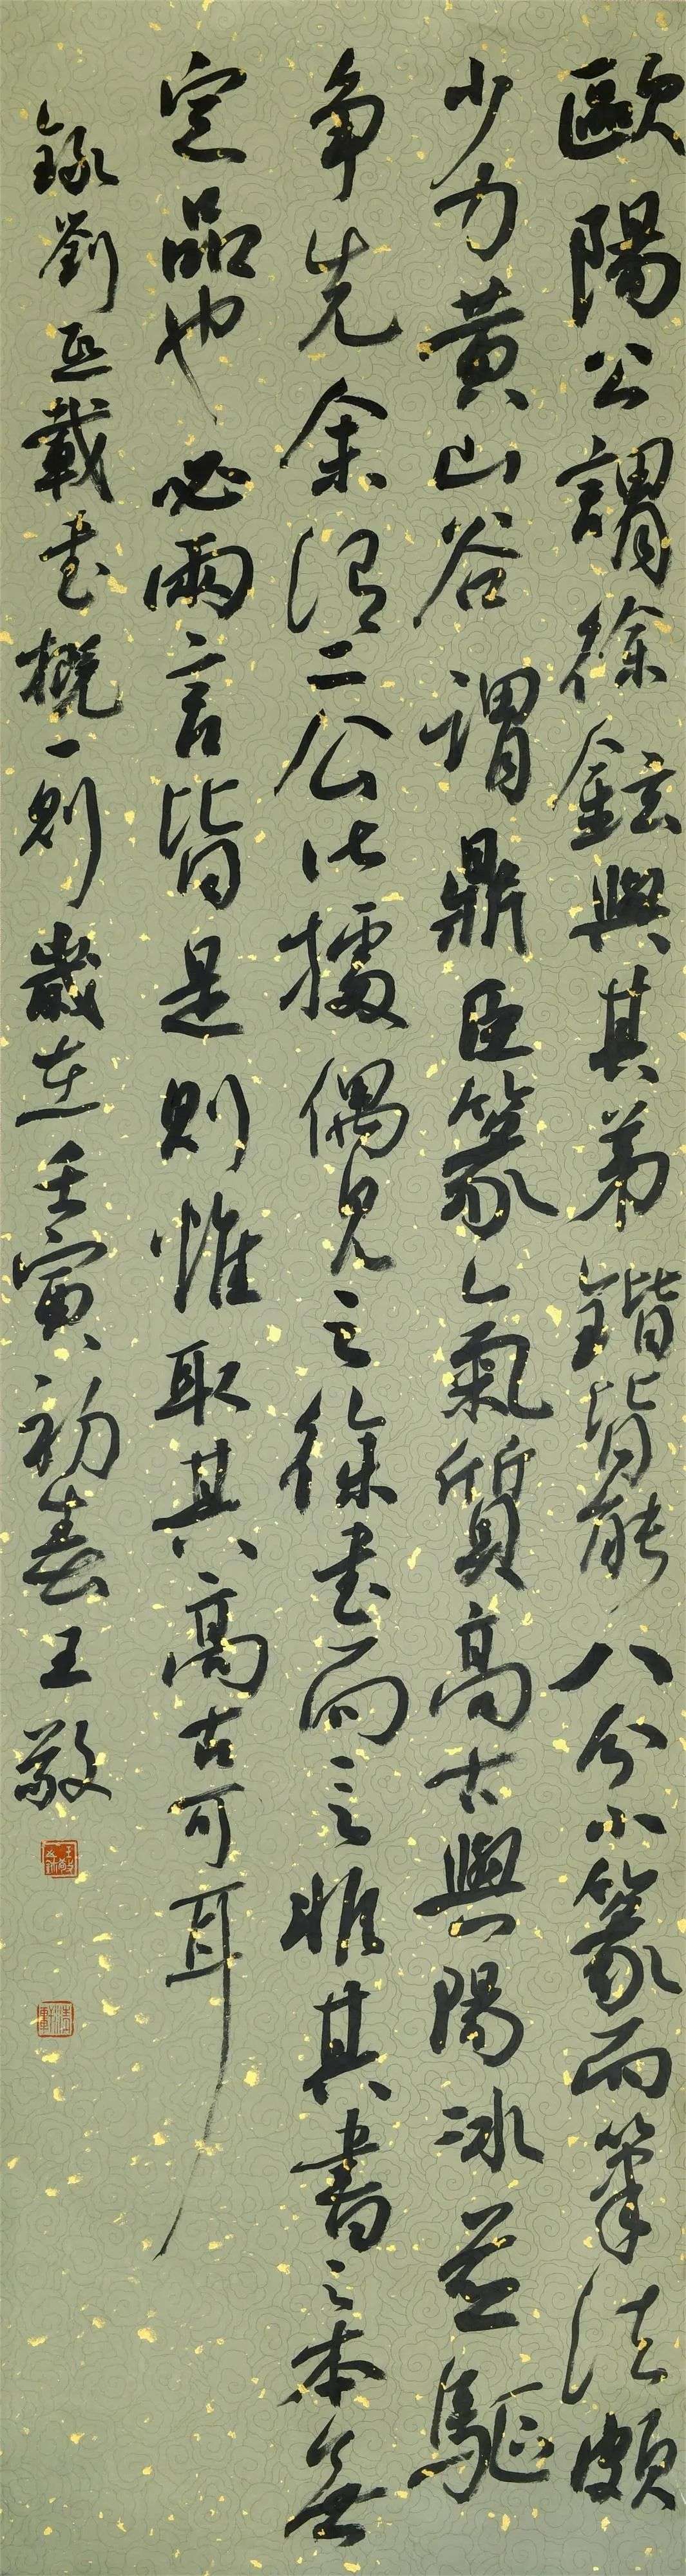 歐陽公謂徐鉉與其弟鍇皆能八分小篆而筆法頗
少力黄山谷謂鼎臣篆气氣質高古與陽冰並驅
争先余謂二公皆據偶見之徐書而言非其書之本無
定品也必兩言皆是則惟取其高古可耳
錄劉熙載書概一則歲在壬寅初春王敬